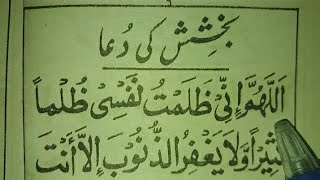 بخشش کی دُعا
اَللّٰهُمَّ اِنِّیْ ظَلَمْتُ نَفْسِیْ ظُلْماً
وَّلَا یَغْفِرُ الذُّنُوْبَ اِلَّا اَنْتَ